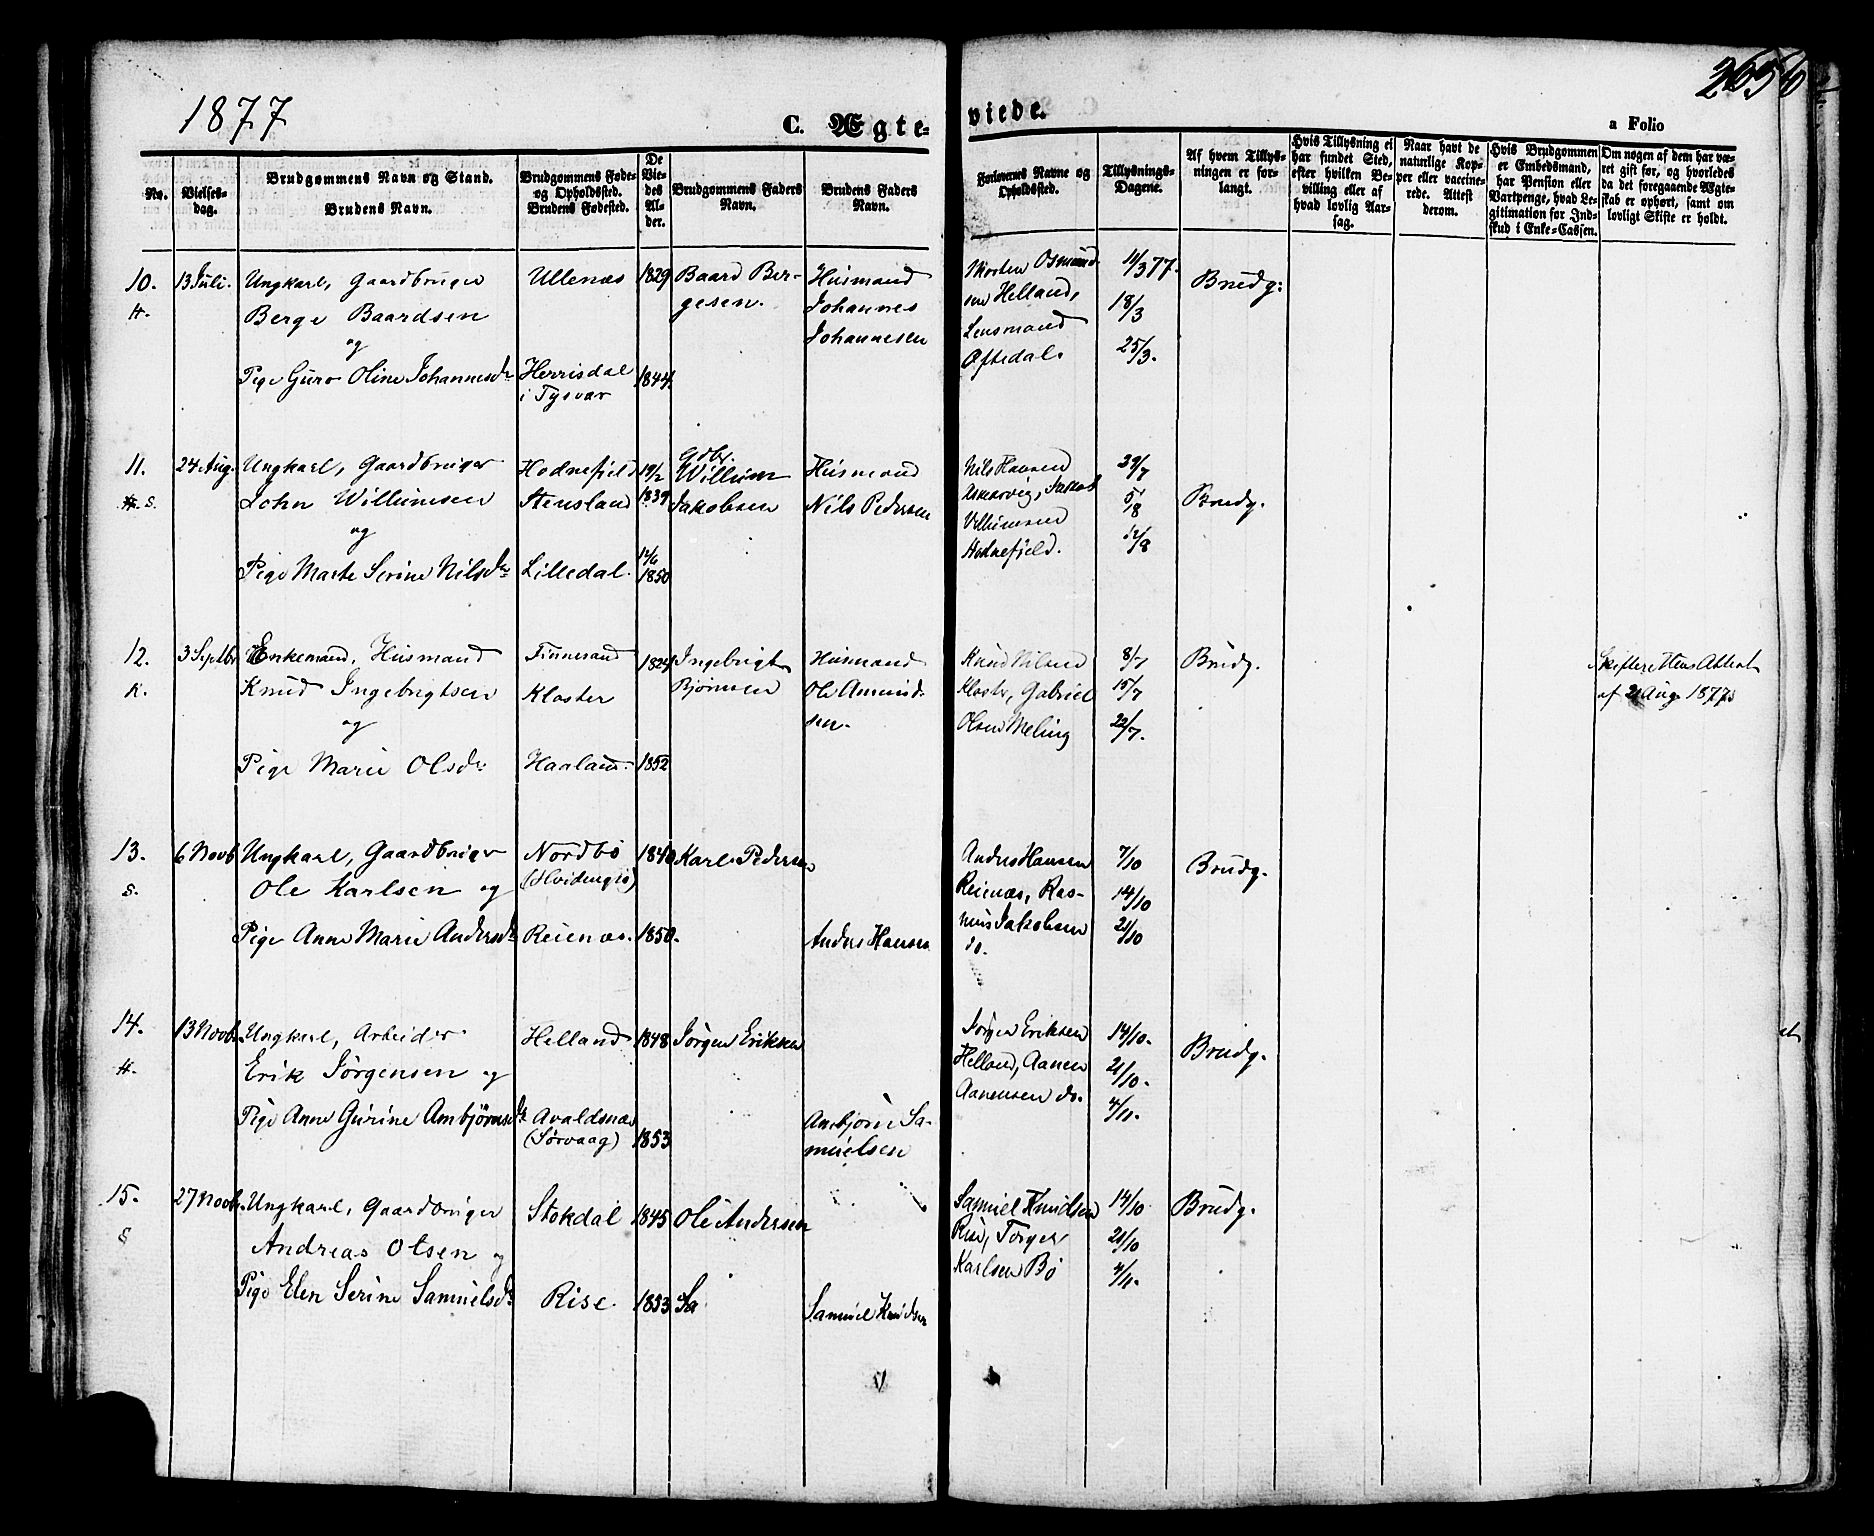 1877
C. Ægte-
viede.
a Folio
No.
Vielses-
dag.
Brudgommens Navn og Stand.
Brudens Navn.
Brudgommens Føde-
og Opholdssted.
Brudens Fødested.
De
Vie-
des
Al-
der.
Brudgommens Faders
Navn.
Brudens Faders
Navn.
Forlovernes Navne og
Opholdssted.
Tillysnings-
Dagene.
Af hvem Tillys-
ningen er for-
langt.
Hvis Tillysning ei
har fundet Sted,
efter hvilken Be-
villing eller af
hvad lovlig Aar-
sag.
Naar havt de
naturlige Kop-
per eller vaccine-
rede. Attest
derom.
Hvis Brudgommen
er Embedsmand,
har Pension eller
Vartpenge, hvad Le-
gitimation for Ind-
skud i Enke-Cassen.
Om nogen af dem har væ-
ret gift før, og hvorledes
da det foregaaende Ægte-
skab er ophørt, samt om
lovligt Skifte er holdt.
10.
H.
13 Juli.
Ungkarl, Gaardbruger
Berge Baardsen
og
Pige Guro Oline Johannesdr
Ullenæs
Herrisdal
i Tysvær
1829
1844
Baard Ber-
gesen.
Husmand
Johannes
Johannesen
Morten Osmund-
sen Helland,
Lensmand
Øftedal.
11/3 77.
18/3
25/3.
Brudg:
11.
S.
24 Aug.
Ungkarl, Gaardbruger
John Willumsen
og
Pige Marte Serine Nilsdr
Hodnefjeld
Stensland
Lilledal.
19/2
1839
12/6
1850
Gdbr.
Willum
Jakobsen
Husmand
Nils Pedersen
Nils Hansen
Askervig, Jakob
Villumsen
Hodnefjeld.
29/7
5/8
12/8
Brudg.
12.
K.
3 Septbr
Enkemand, Husmand
Knud Ingebrigtsen
og
Pige Marie Olsdr
Finnesand
Kloster
Haaland.
1824
1852
Ingebrigt
Bjørnsen
Husmand
Ole Amund-
sen.
Knud Niland
Kloster, Gabriel
Olsen Meling
8/7
15/7
22/7.
Brudg.
Skifterettens Attest
af 21 Aug 1877
13.
S.
6 Novb
Ungkarl, Gaardbruger
Ole Karlsen og
Pige Anne Marie Andersdr
Nordbø
(Hvidingsø)
Reienæs.
1840
1850.
Karl Pedersen
Anders Hansen
Anders Hansen
Reienæs, Ras-
mus Jakobsen
do.
7/10
14/10
21/10
Brudg.
14.
H.
13 Novb.
Ungkarl, Arbeider
Erik Jørgensen og
Pige Anne Gurine Ambjørnsdr
Helland
Avaldsnæs
(Sørvaag)
1848
1853
Jørgen Eriksen
Ambjørn Sa-
muelsen
Jørgen Eriksen
Helland, Aanen
Aanensen do.
14/10.
21/10.
4/11.
Brudg.
15.
S
27 Novb.
Ungkarl, Gaardbruger
Andreas Olsen og
Pige Elen Serine Samuelsdr
Stokdal
Rise.
1845
1853
Ole Andersen
Sa
Samuel Knudsen
Samuel Knudsen
Rise, Torger
Karlsen Bø
14/10
21/10
4/11.
Brudg.